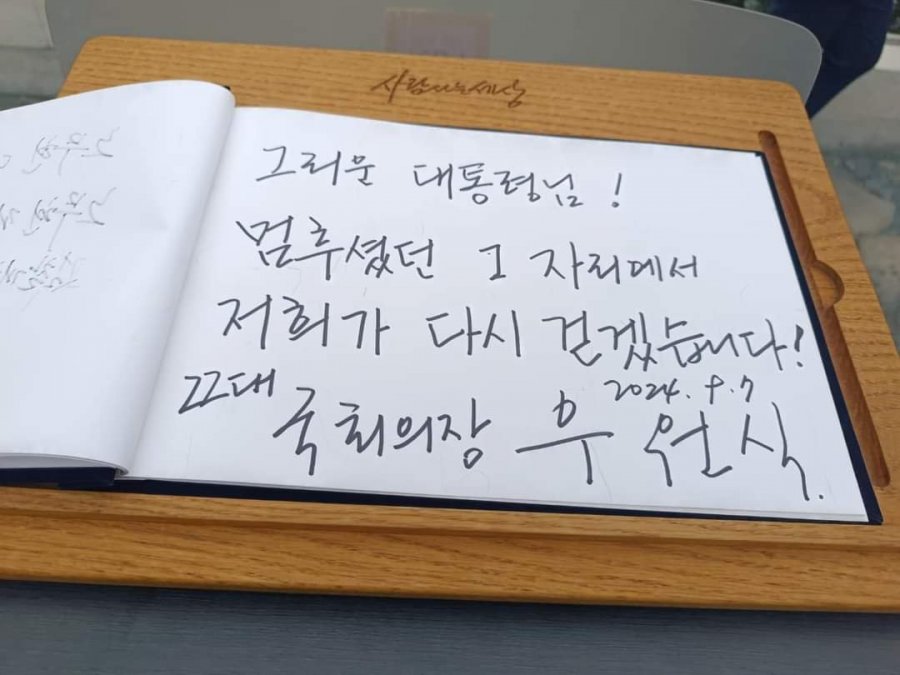 사람사는세상
그리운 대통령님!
멈추셨던 그 자리에서
저희가 다시 걷겠습니다!
2024. 9. 7
22대 국회의장 우원식.